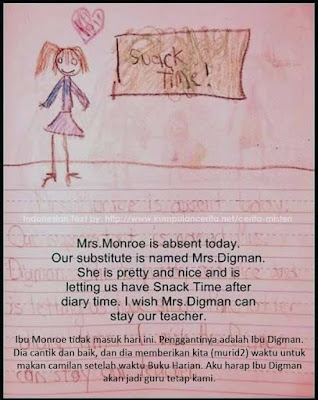 Snack
Time!
Indonesian Text by: http://www.kumpulancerita.net/cerita-misteri
Mrs.Monroe is absent today.
Our substitute is named Mrs.Digman.
She is pretty and nice and is
letting us have Snack Time after
diary time. I wish Mrs.Digman can
stay our teacher.
Ibu Monroe tidak masuk hari ini. Penggantinya adalah Ibu Digman.
Dia cantik dan baik, dan dia memberikan kita (murid2) waktu untuk
makan camilan setelah waktu Buku Harian. Aku harap Ibu Digman
akan jadi guru tetap kami.